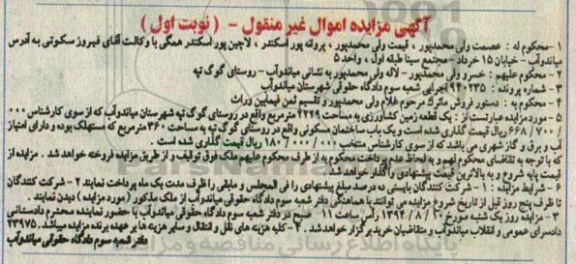 آگهی مزایده اموال غیر منقول - ( نوبت اول )
۱- محکوم له : عصمت ولی محمدپور ، قیمت ولی محمدپور ، پروانه پور اسکندر ، لاچین پور اسکندر همگی با وکالت آقای فیروز سکوتی به آدرس
میاندوآب - خیابان ۱۵ خرداد - مجتمع سینا طبقه اول ، واحد ۵
۲ - محکوم علیهم : خسرو ولی محمدپور - لاله ولی محمدپور به نشانی میاندوآب - روستای گوگ تپه
۳ - شماره پرونده : ۹۴۰۲۳۵ اجرایی شعبه سوم دادگاه حقوقی شهرستان میاندوآب
۴ - محکوم به : دستور فروش ماترک مرحوم غلام ولی محمدپور و تقسیم ثمن فیمابین وراث
۵ - مورد مزایده عبارتست از : یک قطعه زمین کشاورزی به مساحت ۲۲۲۹ مترمربع واقع در روستای گوگ تپه شهرستان میاندوآب که از سوی کارشناس ۰۰۰
/ ۷۰۰ / ۶۶۸ ریال قیمت گذاری شده است و یک باب ساختمان مسکونی واقع در روستای گوگ تپه به مساحت ۳۶۰ مترمربع که مستهلک بوده و دارای امتیاز
آب و برق و گاز شهری می باشد که از سوی کارشناس منتخب ۰۰۰ / ۰۰۰ / ۱۸۰ ریال قیمت گذاری شده است .
که با توجه به تقاضای محکوم لهم و به لحاظ عدم پرداخت محکوم به از طرف محکوم علیهم ملک فوق توقیف و از طریق مزایده فروخته خواهد شد . مزایده از
قیمت پایه شروع و به بالاترین قیمت پیشنهادی واگذار خواهد شد
۶ - شرایط مزایده : ۱ - شرکت کنندگان بایستی ده درصد مبلغ پیشنهادی را فی المجلس و مابقی را ظرف مدت یک ماه پرداخت نمایند ۲ - شرکت کنندگان
تا ظرف پنج روز قبل از تاریخ شروع مزایده می توانند با هماهنگی دفتر شعبه سوم دادگاه حقوقی میاندوآب از ملک مذکور ( مورد مزایده ) دیدن نمایند .
۳ - مزایده روز یک شنبه مورخ ۱۰ / ۸ / ۱۳۹۴ رأس ساعت ۱۱ صبح در دفتر شعبه سوم دادگاه حقوقی میاندوآب با حضور نماینده محترم دادستانی
دادسرای عمومی و انقلاب میاندوآب و متقاضیان خرید برگزار خواهد شد . ۴ - کلیه هزینه های نقل و انتقال و سایر هزینه ها بر عهده برنده مزایده میباشد . ۲۳۹۷۵
دفتر شعبه سوم دادگاه حقوقی میاندوآب
پایگاه اطلاع رسانی مناقصه و مزایده